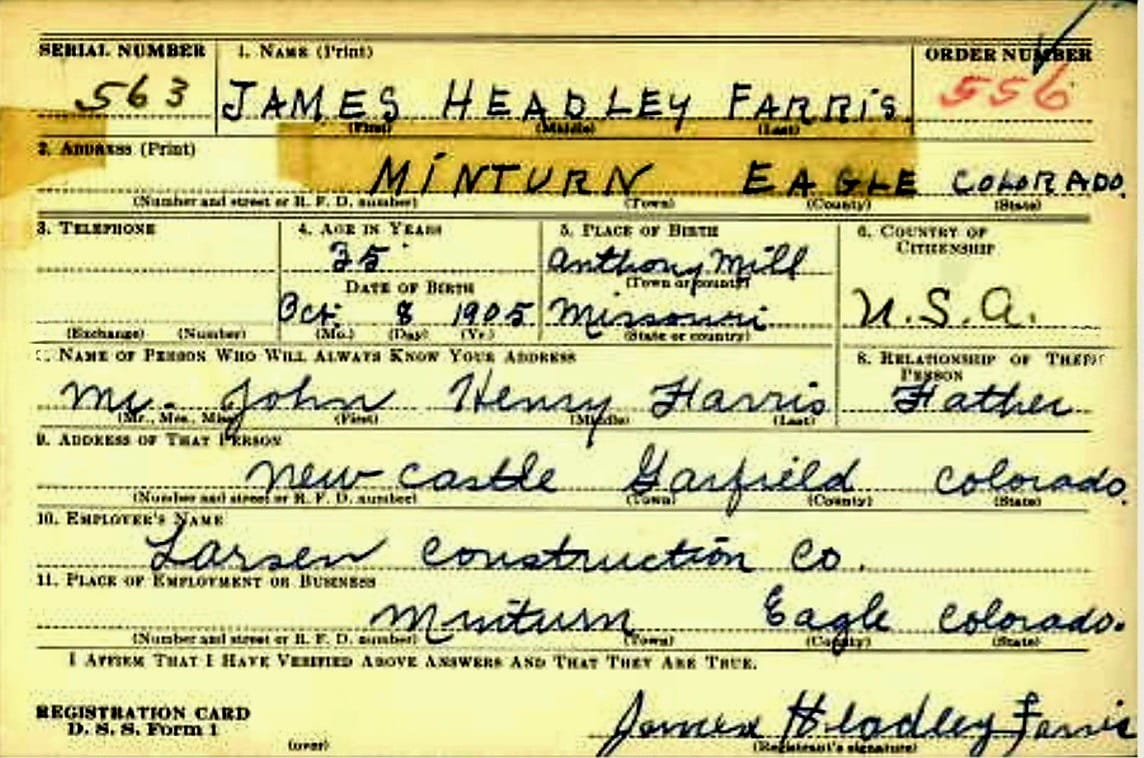 SERIAL NUMBER 1. NAME (Print) ORDER NUMBER
563 JAMES HEADLEY FARRIS. 556
(First) (Middle) (Last)
2. ADDRESS (Print)
MINTURN EAGLE COLORADO.
(Number and street or R. F. D. number) (Town) (County) (State)
3. TELEPHONE 4. AGE IN YEARS 5. PLACE OF BIRTH 6. COUNTRY OF
CITIZENSHIP
35 Anthony Mill
DATE OF BIRTH (Town or county)
Oct. 8 1905 Missouri U.S.A.
(Exchange) (Number) (Mo.) (Day) (Yr.) (State or country)
7. NAME OF PERSON WHO WILL ALWAYS KNOW YOUR ADDRESS 8. RELATIONSHIP OF THAT
PERSON
Mr. John Henry Farris Father
(Mr., Mrs., Miss) (First) (Middle) (Last)
9. ADDRESS OF THAT PERSON
New Castle Garfield Colorado.
(Number and street or R. F. D. number) (Town) (County) (State)
10. EMPLOYER'S NAME
Larsen Construction Co.
11. PLACE OF EMPLOYMENT OR BUSINESS
Minturn Eagle Colorado.
(Number and street or R. F. D. number) (Town) (County) (State)
I AFFIRM THAT I HAVE VERIFIED ABOVE ANSWERS AND THAT THEY ARE TRUE.
REGISTRATION CARD
D. S. S. Form 1 James Headley Farris
(over) (Registrant's signature)